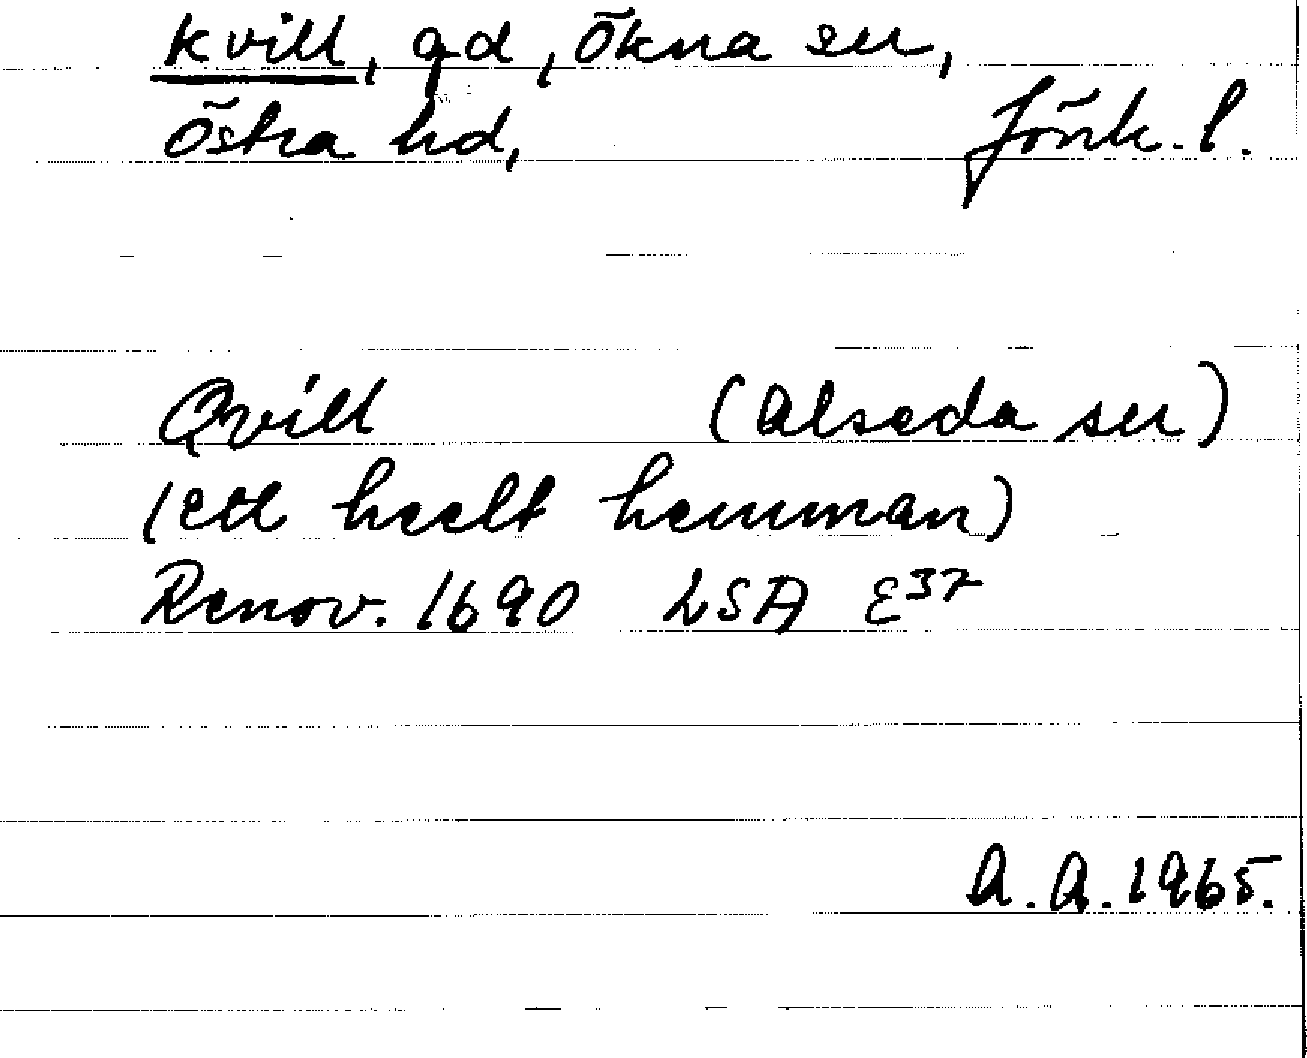 Kvill, gd, Ökna sn,
Östra hd, Jönk. l.
Qvill (Alseda sn)
(ett heelt hemman)
Renov. 1690 LSA E37
A. A. 1965.